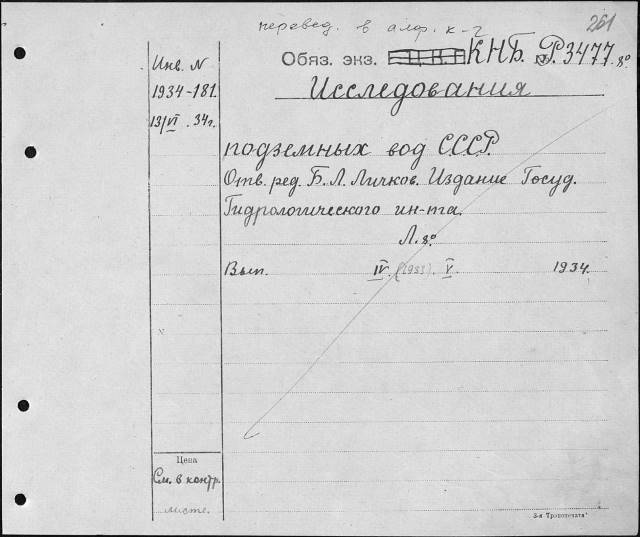 перевед. в алф. к-г
261
Обяз. экз. КНБ. Р.3477. 8°
Инв. N
1934-181.
13/VI. 34г.
Исследования
подземных вод СССР.
Отв. ред. Б. Л. Личков. Издание Госуд.
Гидрологического ин-та.
Л. 8°
Вып. IV. (1933). V. 1934.
x
Цена
См. в контр.
листе.
3-я "Транспечати"